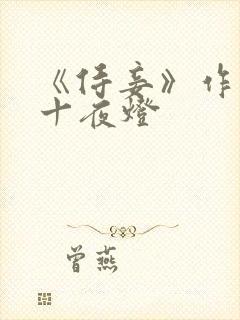 《侍妾》作
十夜燈
曾燕